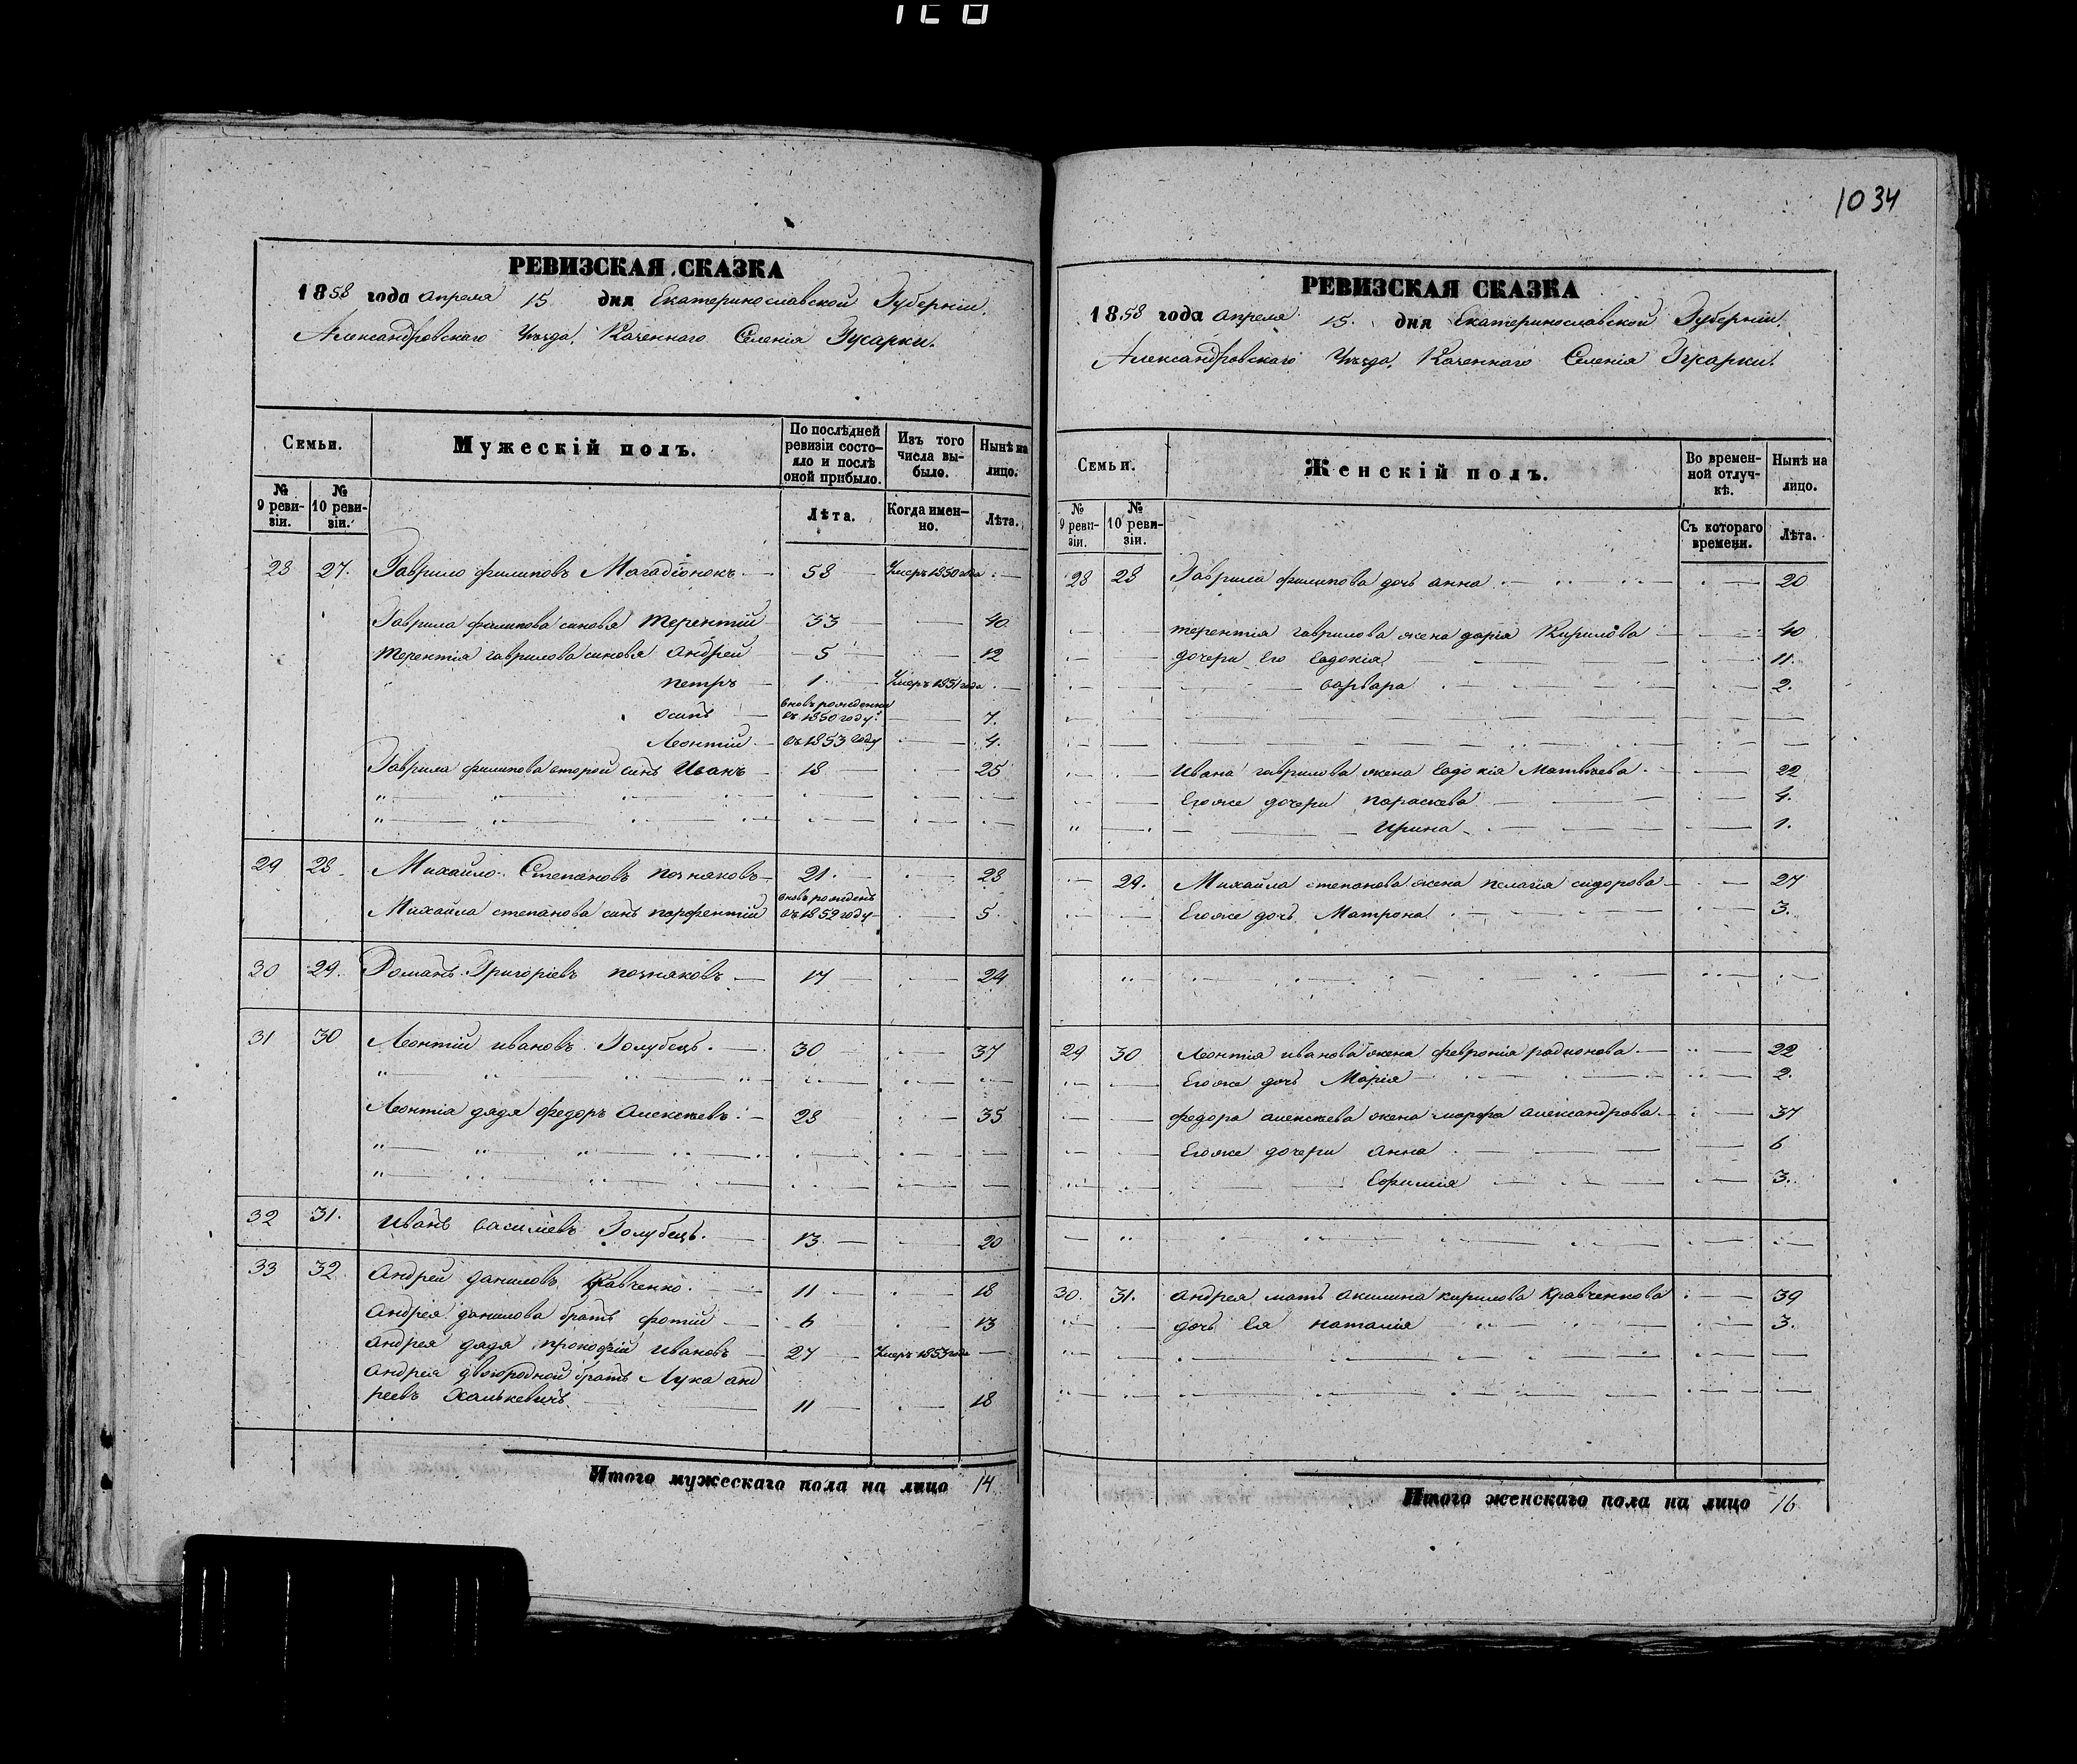 1034
РЕВИЗСКАЯ СКАЗКА
1858 года апреля 15 дня Екатеринославской Губерніи,
Александровскаго Уѣзда, Казеннаго Селенія Гусарки.
Семьи.
Мужескій полъ.
По послѣдней ревизіи состояло и послѣ оной прибыло.
Изъ того числа выбыло.
Нынѣ на лицо.
№ 9 ревизіи.
№ 10 ревизіи.
Лѣта.
Когда именно.
Лѣта.
28 27. Гаврило филиповъ 58 Умеръ 1850 года
Гаврила филипова синовя терентій 33 40
терентія гаврилова синовя андрей 5 12
петръ 1 Умеръ 1851 года
осипъ вновь рожденни въ 1850 году 7.
Леонтій въ 1853 году 4.
Гаврила филипова второй синъ Иванъ 18 25
29 28 Михайло Степановъ позняковъ 21 28
Михайла степанова синъ парфентій вновь рожденъ въ 1852 году 5
30 29. Романъ Григоріевъ позняковъ 17 24
31 30 Леонтій ивановъ Голубецъ 30 37
Леонтія дядя федоръ алексѣевъ 28 35
32 31. иванъ василіевъ Голубецъ 13 20
33 32. Андрей даниловъ Кравченко 11 18
андрея данилова братъ фотій 6 13
андрея дядя прокофій ивановъ 27 Умеръ 1853 года
андрея двоюродной братъ Лука анд
реевъ 11 18
Итого мужескаго пола на лицо 14
РЕВИЗСКАЯ СКАЗКА
1858 года апреля 15. дня Екатеринославской Губерніи,
Александровскаго Уѣзда, Казеннаго Селенія Гусарки.
Семьи.
Женскій полъ.
Во временной отлучкѣ.
Нынѣ на лицо.
№ 9 ревизіи.
№ 10 ревизіи.
Съ котораго времени.
Лѣта.
28 28 Гаврила филипова дочь анна 20
терентія гаврилова жена дарія Кирилова 40
дочери Его Евдокія 11.
варвара 2.
ивана гаврилова жена Евдокія Матвѣева 22
Егоже дочери параскева 4.
ирина 1.
29. Михайла степанова жена пелагія сидорова 27
Егоже дочь Матрона 3.
29 30 Леонтія иванова жена февронія радионова 22
Егоже дочь Марія 2.
федора алексѣева жена марфа александрова 37
Егоже дочери анна 6
Ефимія 3.
30. 31. андрея мать акилина кирилова Кравченкова 39
дочь Ея наталія 3.
Итого женскаго пола на лицо 16